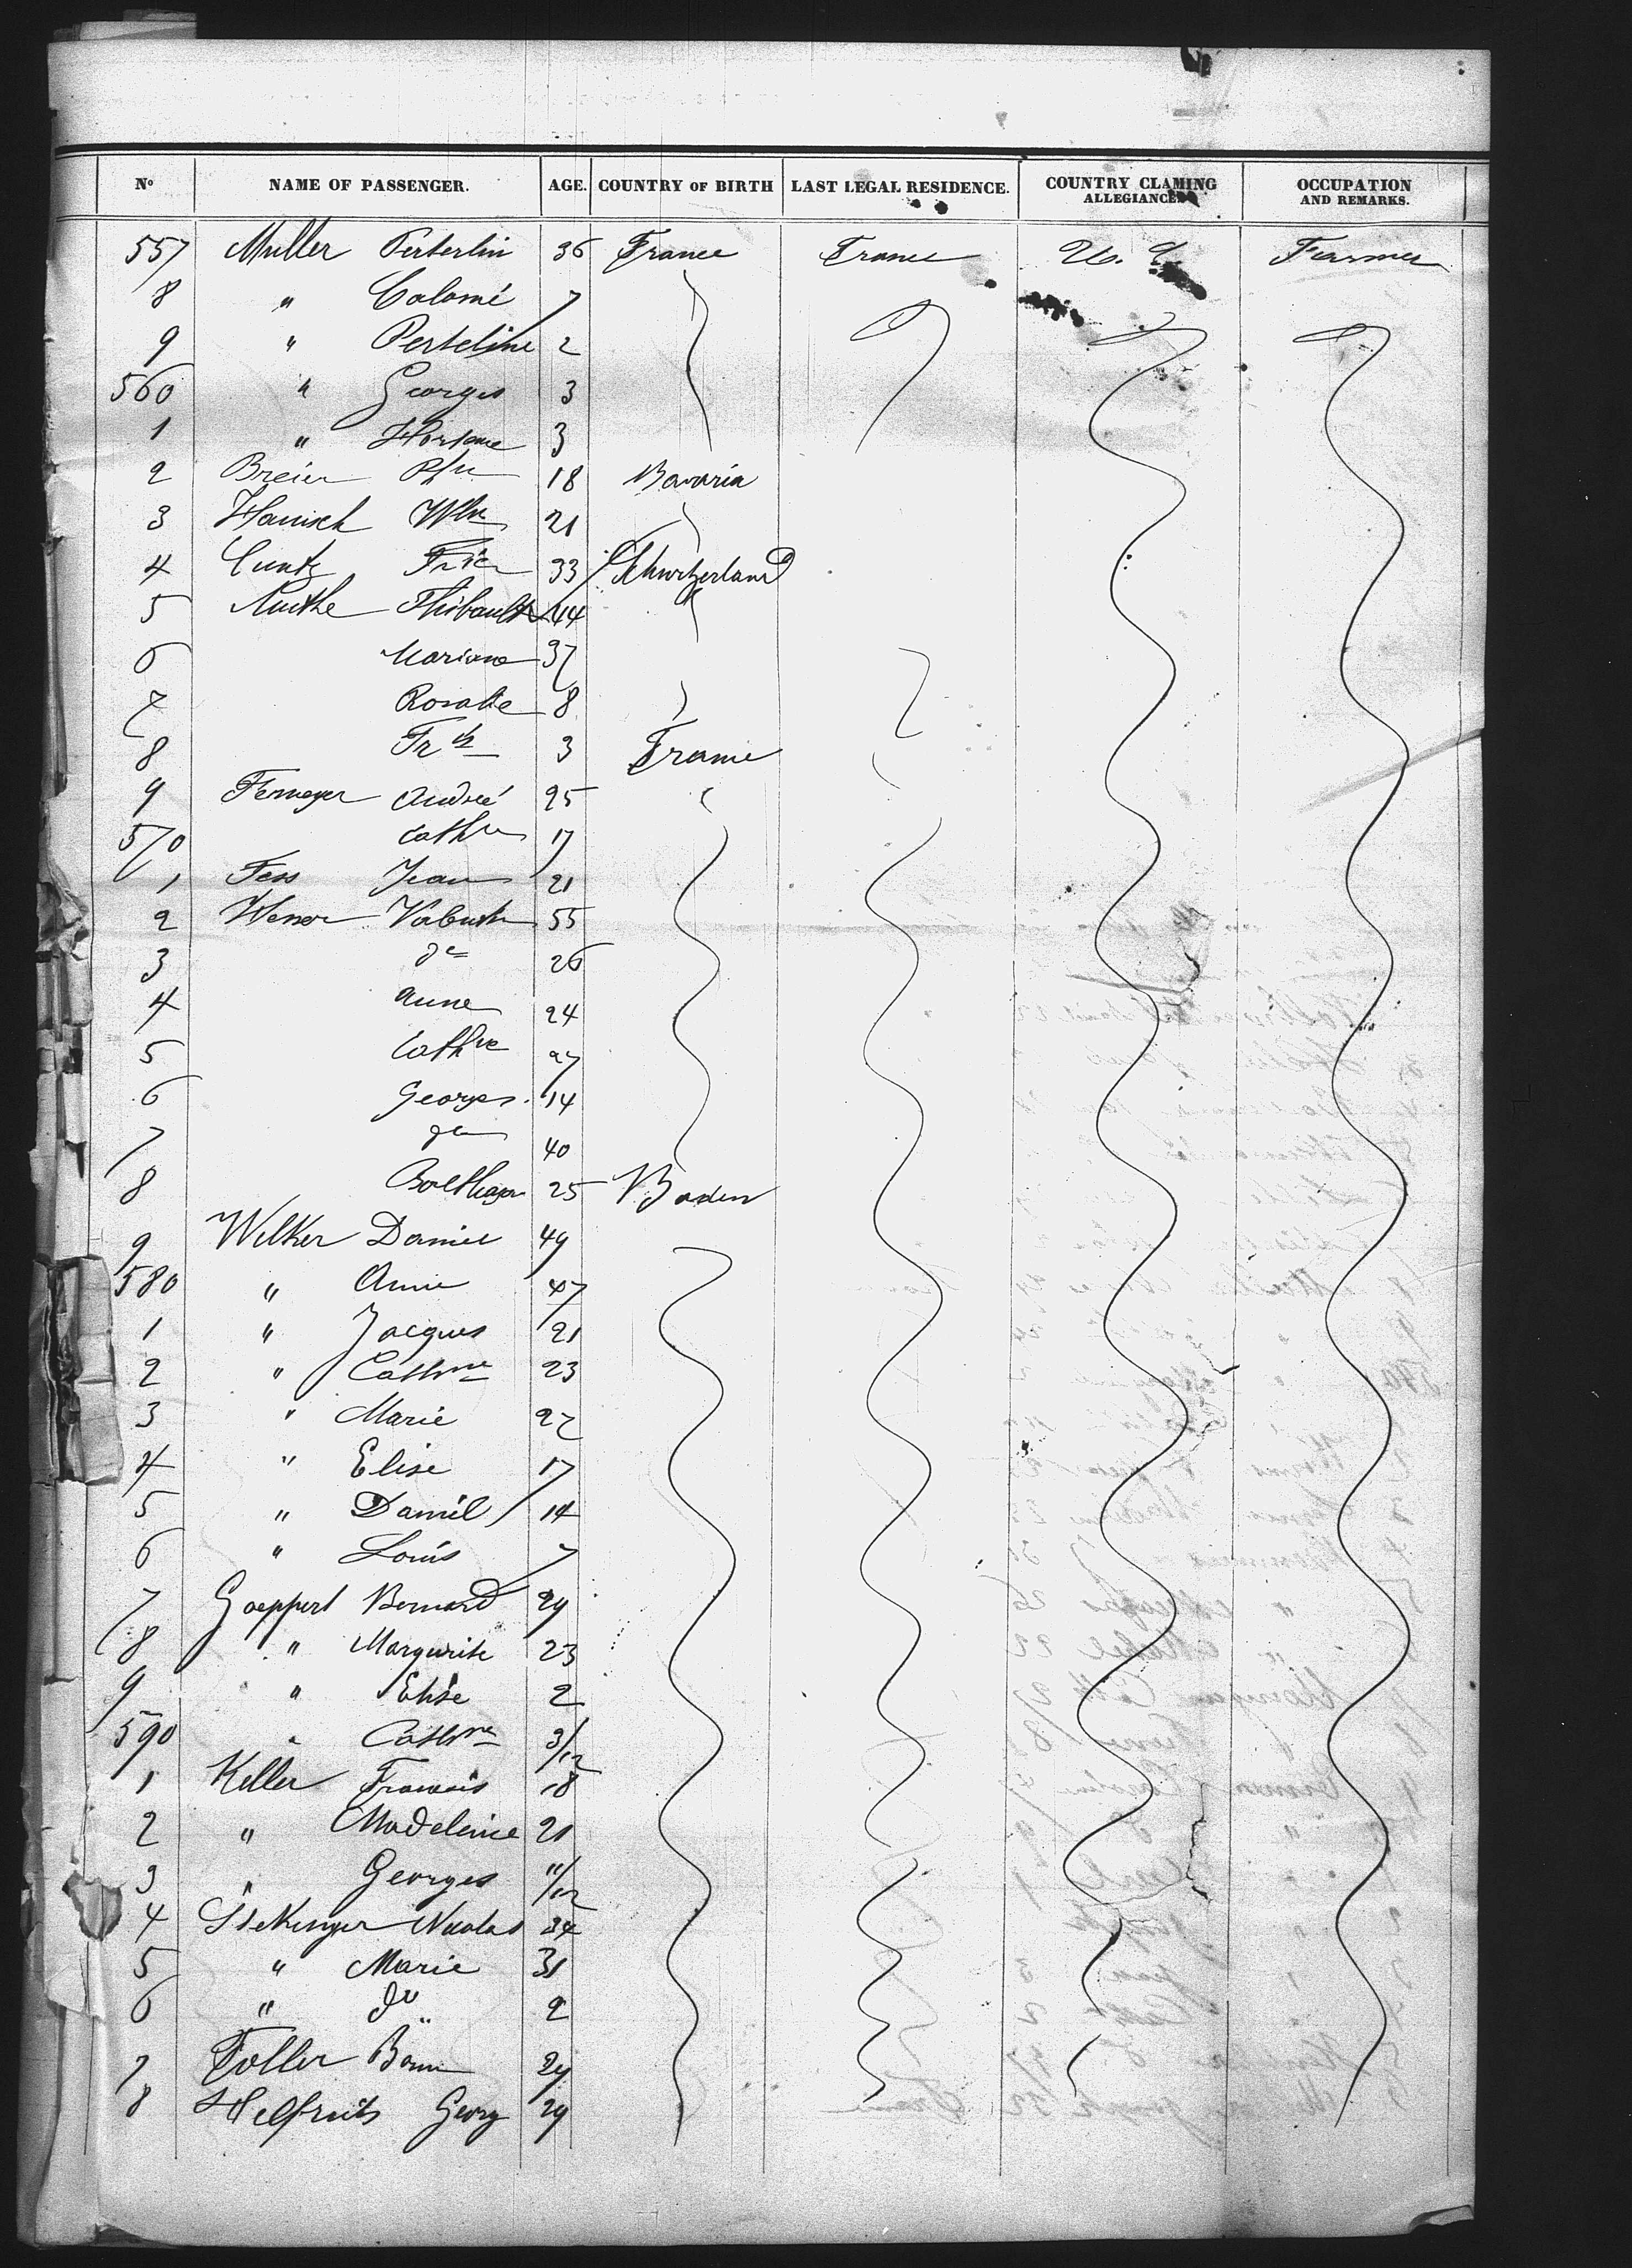 No NAME OF PASSENGER. AGE. COUNTRY OF BIRTH LAST LEGAL RESIDENCE. COUNTRY CLAMING ALLEGIANCE OCCUPATION AND REMARKS.
557 Muller 36 France France U. Farmer
8 " 7
9 " Perteline 2
560 " Georges 3
1 " 3
2 Breier 18 Bavaria
3 Hanisch Wm 21
4 Cuntz 33
5 Thibault 44
6 Mariane 37
7 Rosalie 8
8 3 France
9 Femeyer André 25
570 Cathne 17
1 Fess Jean 21
2 55
3 do 26
4 Anne 24
5 Cathne 27
6 Georges 14
7 do 40
8 25 Baden
9 Welker Daniel 49
580 " Anne 47
1 " Jacques 21
2 " Cathne 23
3 " Marie 22
4 " Elise 17
5 " Daniel 14
6 " Louis 7
7 Goeppert Bernard 29
8 " Margurite 23
9 " Elise 2
590 " Cathne 3/12
1 Keller Francois 18
2 " Madeleine 21
3 " Georges 11/12
4 Nicolas 34
5 " Marie 31
6 " do 2
7 Toller 29
8 Helfruts Georg 29